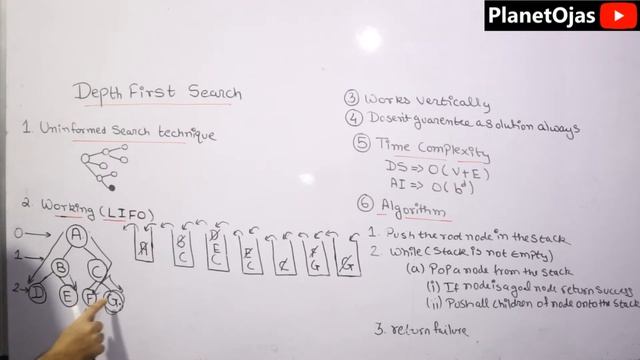 PlanetOjas
Depth First Search
1. Uninformed Search technique
2. Working (LIFO)
0
1
2
A
B
C
D
E
F
G
A
B
C
D
E
C
E
C
C
F
G
G
③ Works Vertically
④ Dosent guarentee a solution always
⑤ Time Complexity
DS => O(V+E)
AI => O(b^d)
⑥ Algorithm
1. Push the root node in the stack
2. While (Stack is not Empty)
(a) Pop a node from the stack
(i) If node is a goal node return success
(ii) Push all children of node onto the stack
3. return failure